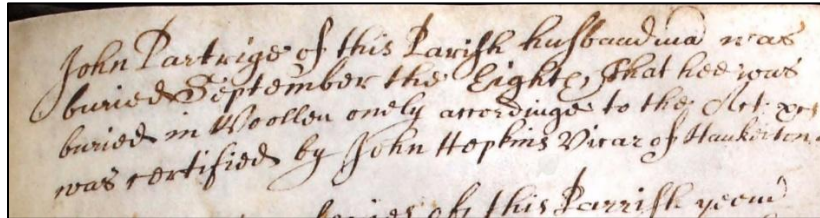 John Partrige of this Parish husbandmā was
buried September the Eight, That hee was
buried in Woollen onely accordinge to the Act
was certified by John Hopkins Vicar of Hankerton.
of this Parrish yeomā